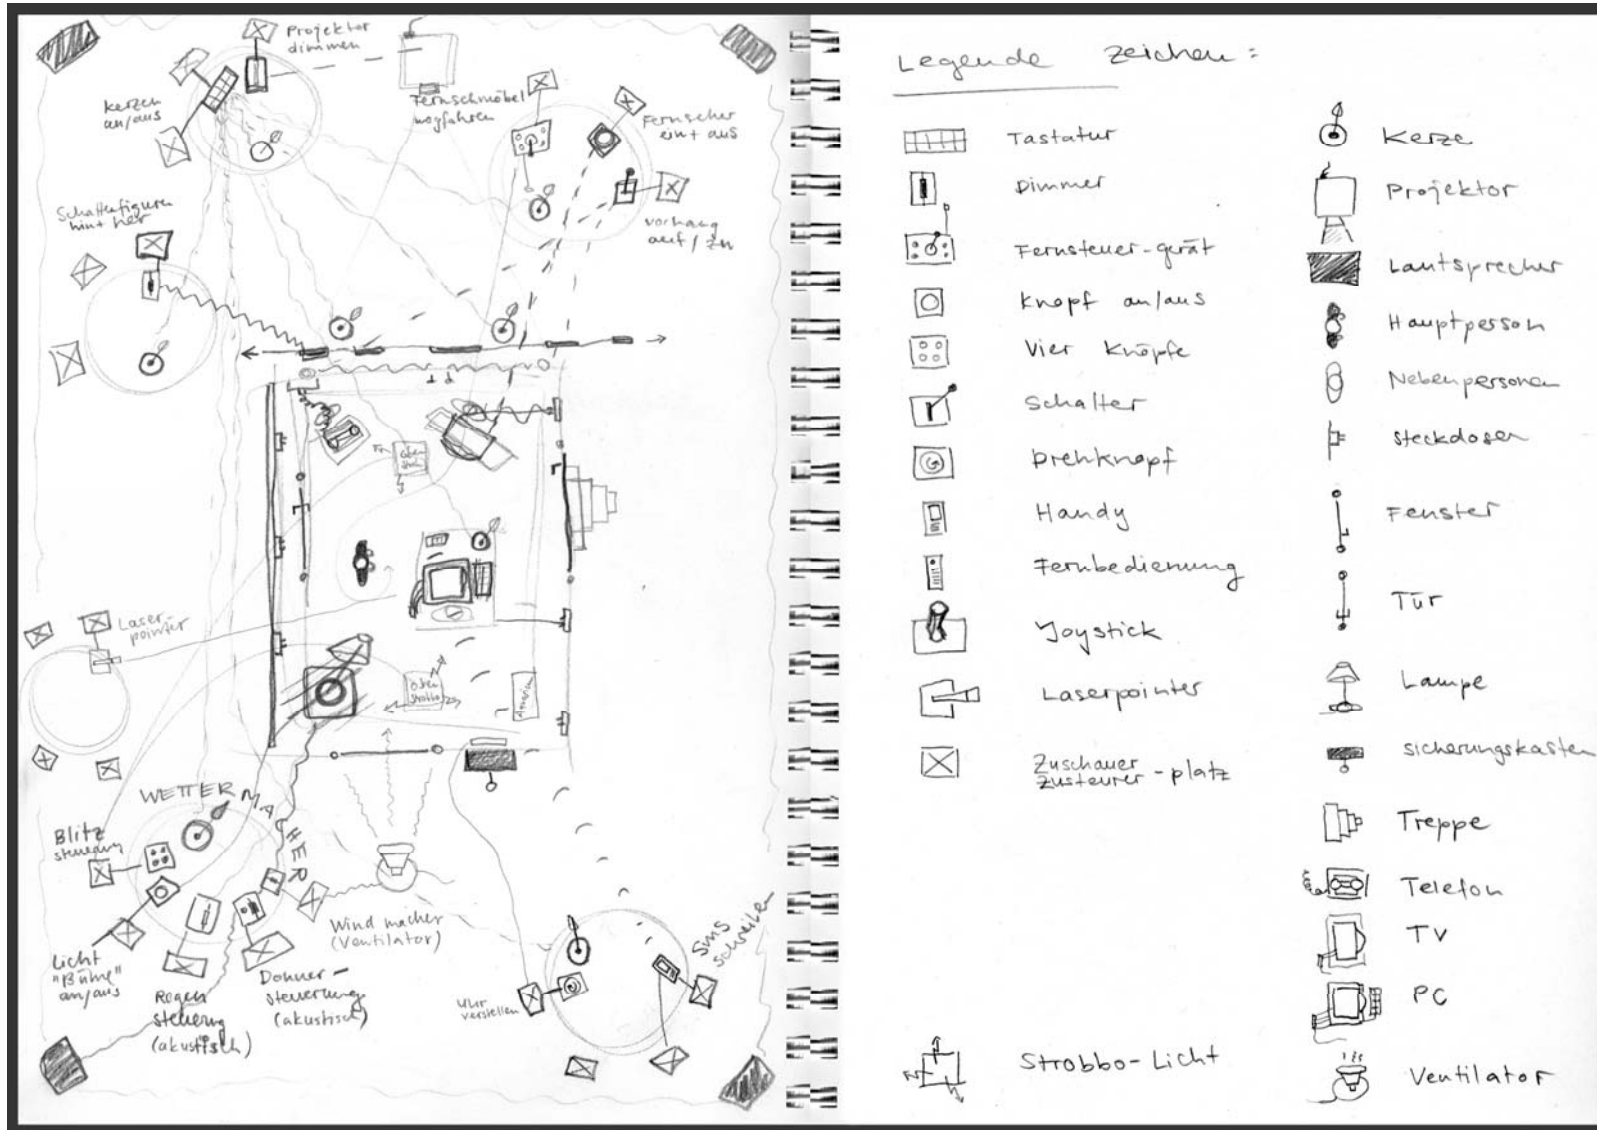 Projektor
dimmen
Kerzen
an/aus
Fernsehmöbel
wegfahren
Fernseher
ein + aus
Vorhang
auf / zu
Schattenfiguren
hin + her
Oben
Laser-
pointer
Oben
Strobbo
WETTERMACHER
Blitz
steuerung
Licht
"Büne"
an/aus
Regen
steuerung
(akustisch)
Donner-
steuerung
(akustisch)
Wind macher
(Ventilator)
Uhr
verstellen
SMS
schreiben
Legende Zeichen:
Tastatur
Dimmer
Fernsteuer-gerät
Knopf an/aus
Vier Knöpfe
Schalter
Drehknopf
Handy
Fernbedienung
Joystick
Laserpointer
Zuschauer
Zusteurer-platz
Strobbo-Licht
Kerze
Projektor
Lautsprecher
Hauptperson
Nebenpersonen
Steckdosen
Fenster
Tür
Lampe
Sicherungskasten
Treppe
Telefon
TV
PC
Ventilator